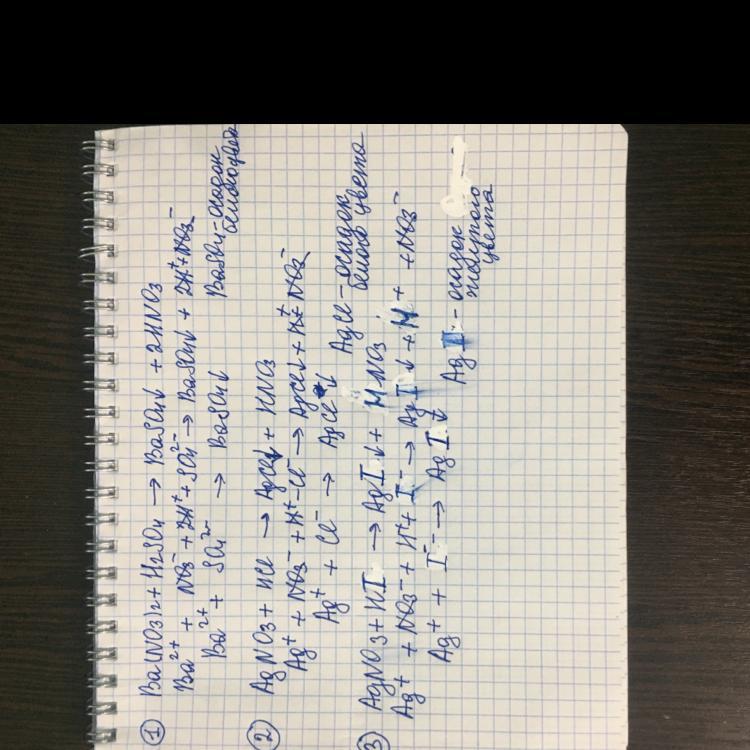 ① Ba(NO3)2 + H2SO4 → BaSO4↓ + 2HNO3
Ba²⁺ + NO3⁻ + 2H⁺ + SO4²⁻ → BaSO4↓ + 2H⁺ + NO3⁻
Ba²⁺ + SO4²⁻ → BaSO4↓
BaSO4 - осадок
белого цвета
② AgNO3 + HCl → AgCl↓ + HNO3
Ag⁺ + NO3⁻ + H⁺ - Cl⁻ → AgCl↓ + H⁺ + NO3⁻
Ag⁺ + Cl⁻ → AgCl↓
AgCl - осадок
белого цвета
③ AgNO3 + HI → AgI↓ + HNO3
Ag⁺ + NO3⁻ + H⁺ + I⁻ → AgI↓ + H⁺ + NO3⁻
Ag⁺ + I⁻ → AgI↓
AgI - осадок
желтого
цвета